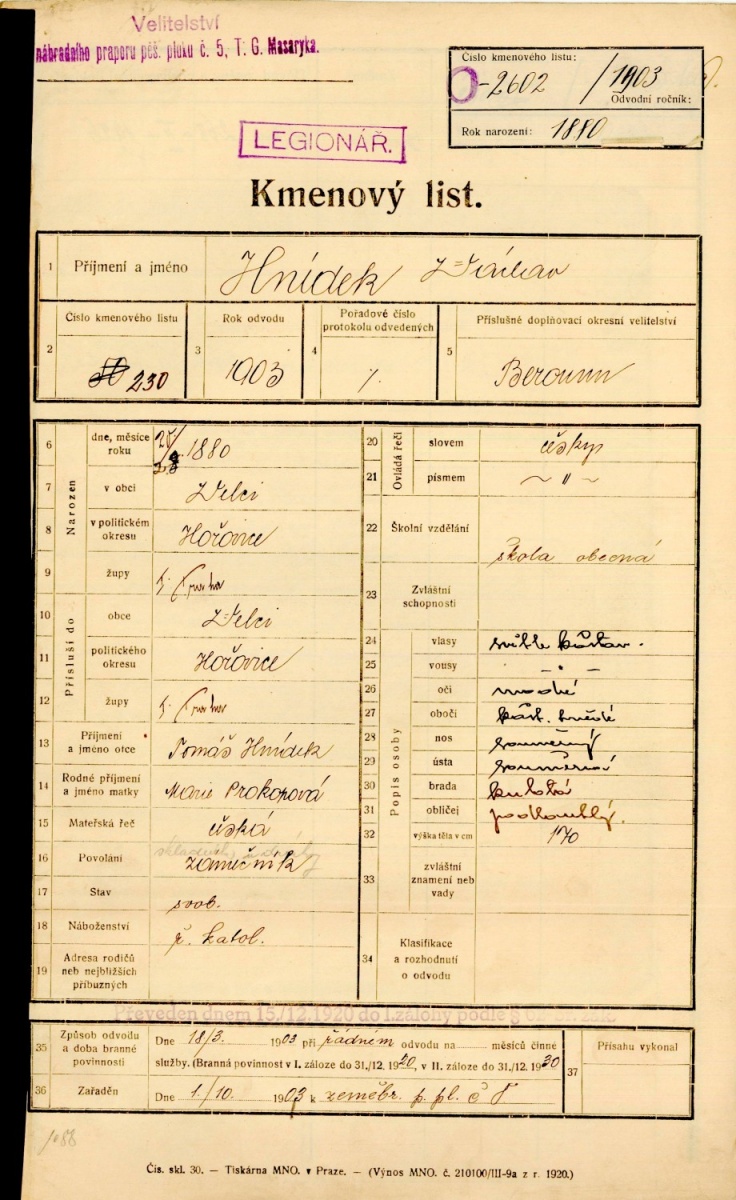 Velitelství
náhradního praporu pěš. pluku č. 5, T. G. Masaryka.
Číslo kmenového listu:
-2602 / 1903
Odvodní ročník:
Rok narození: 1880
LEGIONÁŘ.
Kmenový list.
1 Příjmení a jméno Hnídek Václav
2 Číslo kmenového listu 230
3 Rok odvodu 1903
4 Pořadové číslo protokolu odvedených
5 Příslušné doplňovací okresní velitelství Beroun
Narozen
6 dne, měsíce roku 1880
7 v obci Velci
8 v politickém okresu Hořovice
9 župy Praha
Přísluší do
10 obce Velci
11 politického okresu Hořovice
12 župy Praha
13 Příjmení a jméno otce Tomáš Hnídek
14 Rodné příjmení a jméno matky Marie Prokopová
15 Mateřská řeč česká
16 Povolání zámečník
17 Stav svob.
18 Náboženství ř. katol.
19 Adresa rodičů neb nejbližších příbuzných
Ovládá řeči
20 slovem česky
21 písmem – " –
22 Školní vzdělání škola obecná
23 Zvláštní schopnosti
Popis osoby
24 vlasy světle kaštan.
25 vousy - " -
26 oči modré
27 obočí kašt. hnědé
28 nos souměrný
29 ústa souměrná
30 brada kulatá
31 obličej podlouhlý.
32 výška těla v cm 170
33 zvláštní znamení neb vady
34 Klasifikace a rozhodnutí o odvodu
Převeden dnem 15./12.1920 do I.zálohy podle §
35 Způsob odvodu a doba branné povinnosti Dne 18/3. 1903 při řádném odvodu na — měsíců činné
služby. (Branná povinnost v I. záloze do 31./12. 1920, v II. záloze do 31./12. 1930
36 Zařaděn Dne 1./10. 1903 k zeměbr. p. pl. č
37 Přísahu vykonal
1088
Čís. skl. 30. — Tiskárna MNO. v Praze. — (Výnos MNO. č. 210100/III-9a z r. 1920.)